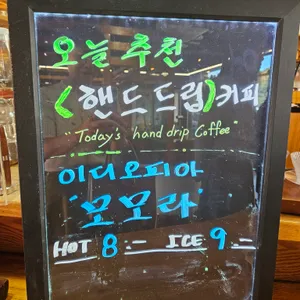 오늘추천
<핸드드립>커피
"Today's hand drip Coffee"
이디오피아
'모모라'
HOT 8.- ICE 9.-